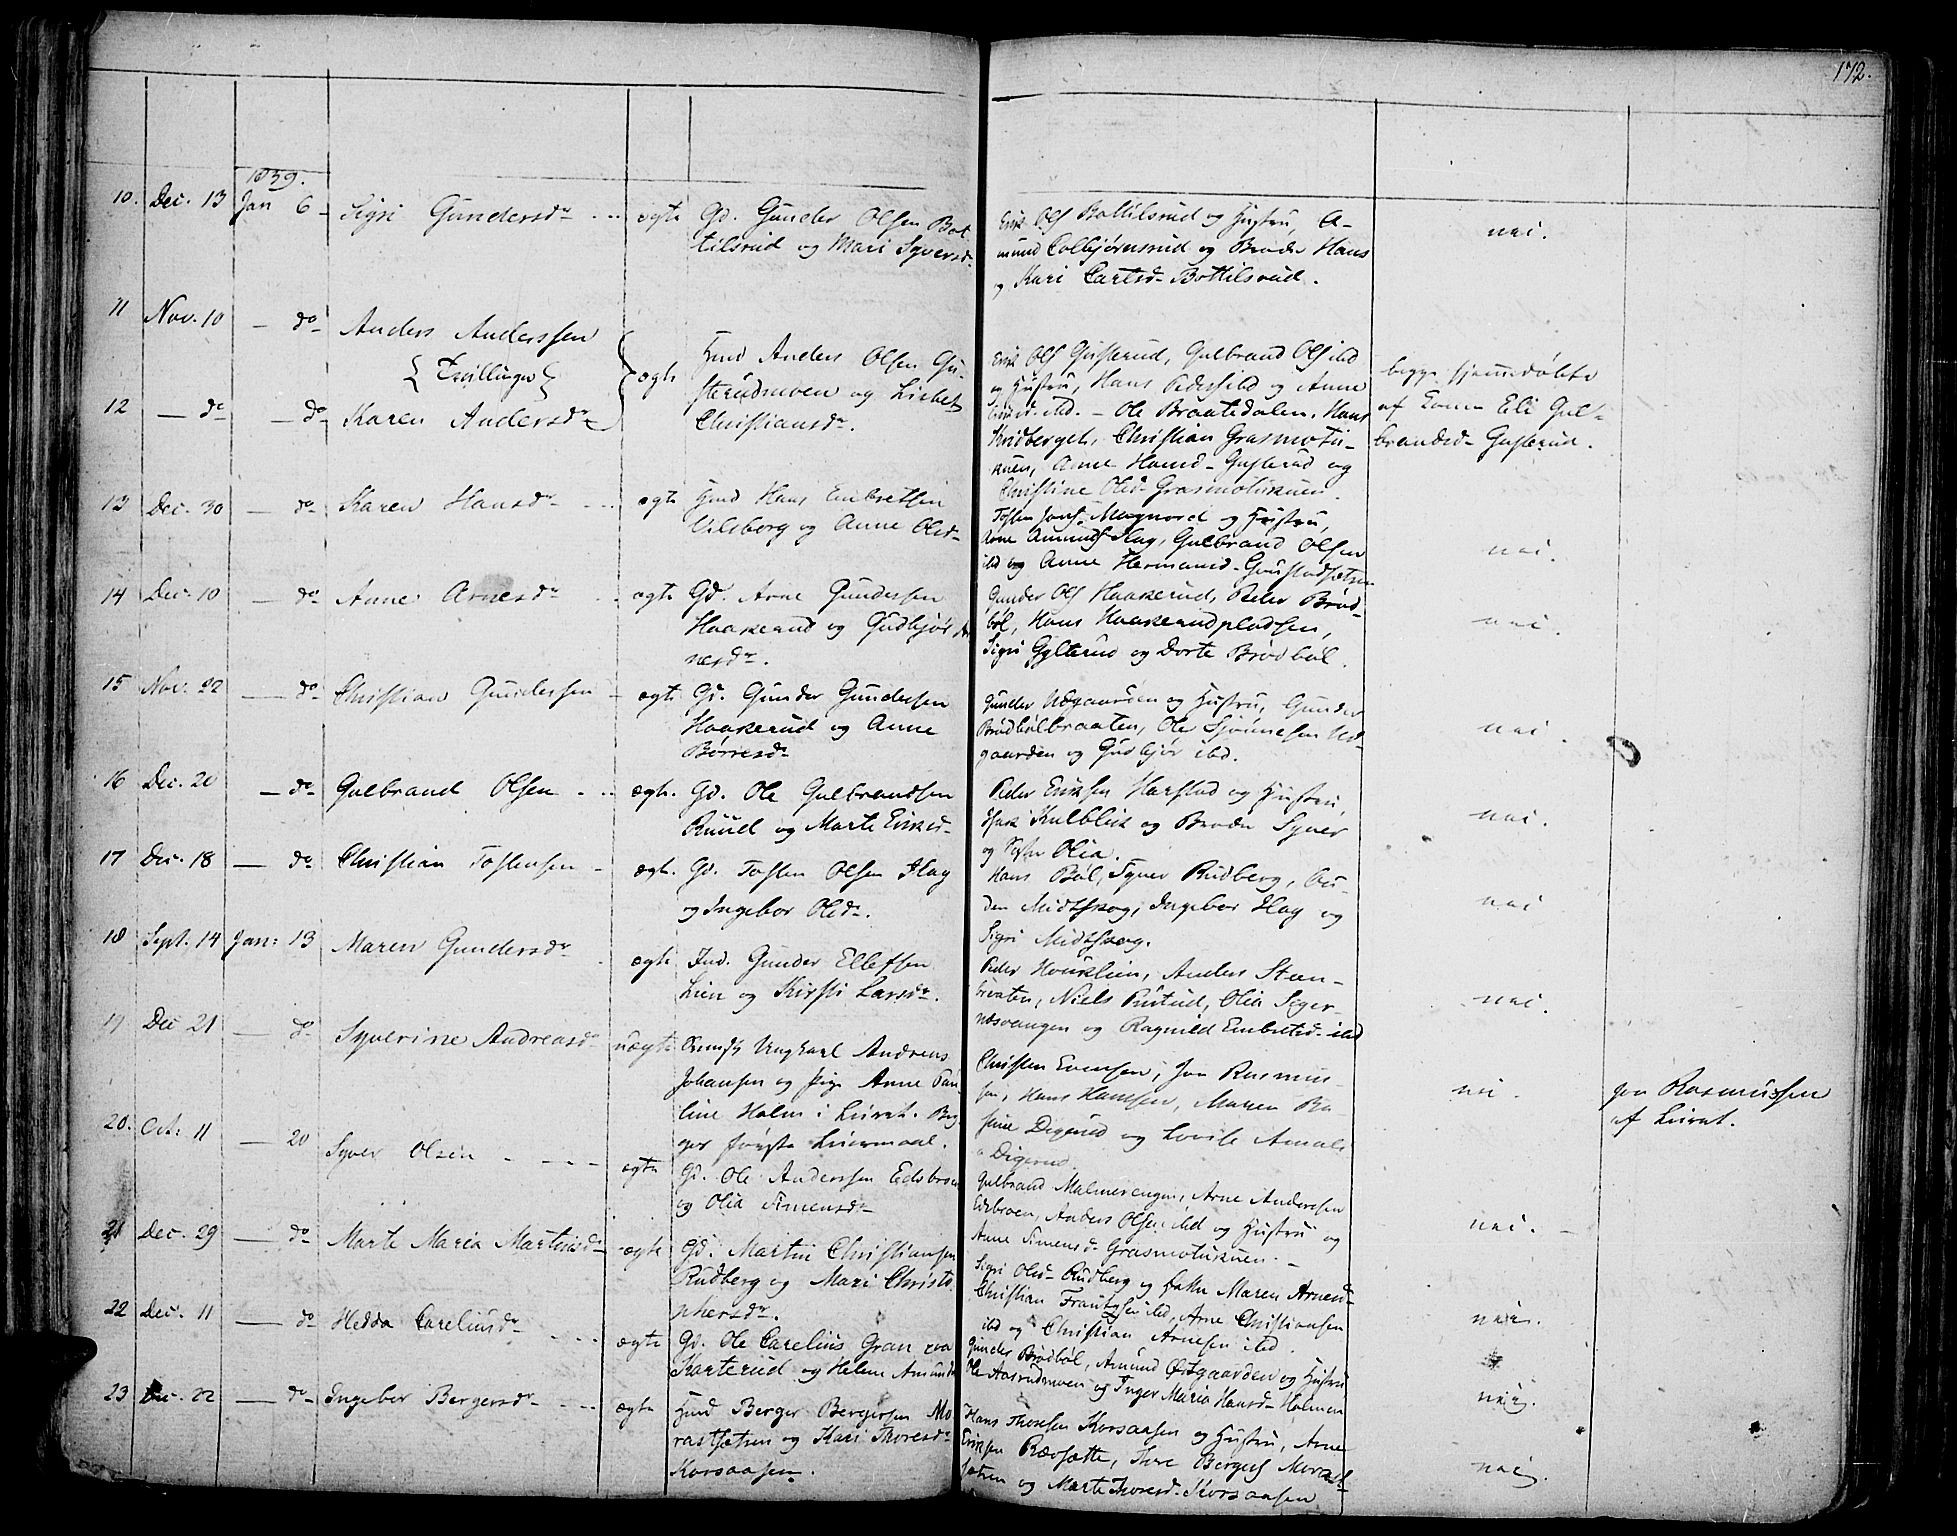 172.
1839.
10. Dec. 13 Jan 6 - Sigri Gundersdr ... ægte Gd. Gunder Olsen Bot
tilsrud og Mari Syversdr
Erik Ols Bottilsrud og Hustru, A-
mund Colbjørnsrud og Broder Hans
og Kari Carlsd- Bottilsrud.
nei.
11 Nov. 10 - do Anders Anderssen
{Tvillinger}
12 - do - do Karen Andersdr
ægte Hmd Anders Olsen Gu-
sterudmoen og Lisbet
Christiansdr.
Erik Ols Gusterud, Gulbrand Ols ibd
og Hustru, Hans Peders ibd og Anne
ibd. - Ole Braatedalen, Hans
Christian Grasmotu-
Anne Hansd- Gusterud og
Christine Olsd- Grasmotukuen.
begge hjemmedøbte
af Konen Eli Gul-
brandsd- Gusterud.
13 Dec. 30 - do Karen Hansdr ... ægte Hmd Hans Embretsen
Vilsberg og Anne Olsd-
Tosten Magnord og Hustru,
Arne Amunds Flag, Gulbrand Olsen
ibd og Anne Hermansd-
nei.
14 Dec. 10 - do Anne Arnesdr ægte Gd. Arne Gundersen
Haakerud og Gudbjør Ar
nesdr.
Gunder Ols Haakerud, Peder Brød-
bøl, Hans Haakerudpladsen,
Sigri Gylterud og Dorte Brødbøl.
nei.
15 Nov. 22 - do Christian Gundersen - ægte Gd. Gunder Gundersen
Haakerud og Anne
Børresdr
Gunder Udgaarden og Hustru, Gunder
Brødbølbraaten, Ole Ud-
gaarden og Gudbjør ibd.
nei.
16 Dec. 20 - do Gulbrand Olsen ... ægte. Gd. Ole Gulbrandsen
Ruud og Marte Eriksd-
Peder Eriksen Harstad og Hustru,
Kulblik og Broder Syver
og Olia.
nei.
17 Dec. 18 - do Christian Tostensen - ægte. Gd. Tosten Olsen Flag
og Ingebor Olsdr.
Hans Bøl, Syver Rudberg, Au-
den Midtskog, Ingebor Flag og
Sigri Midtskog.
nei
18 Sept. 14 Jan: 13 Maren Gundersdr ægte Ind. Gunder Ellefsen
Lien og Kirsti Larsdr.
Peder Anders Steen-
braaten, Niels Olia Seger-
næsvangen og Ragnild Embretsd- ibd
nei.
19 Dec 21 - do Syverine Andreasdr uægte Ungkarl Andreas
Johansen og Pige Anne Pau-
line Holm i Leiret. Beg-
ges første Leiermaal.
Christen Evensen, Jon Rasmus-
sen, Hans Hansen, Maren Ra-
Digerud og Lovise Amali-
a Digerud.
nei. Jon Rasmussen
af Leiret.
20. Oct: 11 - 20 Syver Olsen - - - ægte Gd. Ole Anderssen Eidsbroen
og Olia Simensdr
Gulbrand Malmerengen, Arne Anderssen
Eidsbroen, Anders Olsen ibd og Hustru og
Anne Simensd- Grasmotukuen. -
nei. -
21 Dec. 29 - do Marte Maria Martinsdr ægte Gd. Martin Christiansen
Rudberg og Mari Christo
phersdr.
Sigri Olsd- Rudberg og Maren Arnesd-
Christian Frantzsen ibd, Arne Christiansen
ibd og Christian Arnesen ibd.
nei.
22 Dec. 11 - do Hedda Careliusdr ... ægte Gd. Ole Carelius Gran paa
Karterud og Helene Amundsd
Gunder Brødbøl, Amund Østgaarden og Hustru
Ole Aasrudmoen og Inger Maria Hansd- Holmen
nei.
23 Dec. 22 - do Ingebor Bergersdr ... ægte Hmd Berger Bergersen Mo
rastsætren og Kari Thoresdr
Korsaasen.
Hans Thoresen Korsaasen og Hustru, Arne
Eriksen Rævsætte, Thore Bergers Morast-
sætren og Marte Thoresd- Korsaasen
nei.